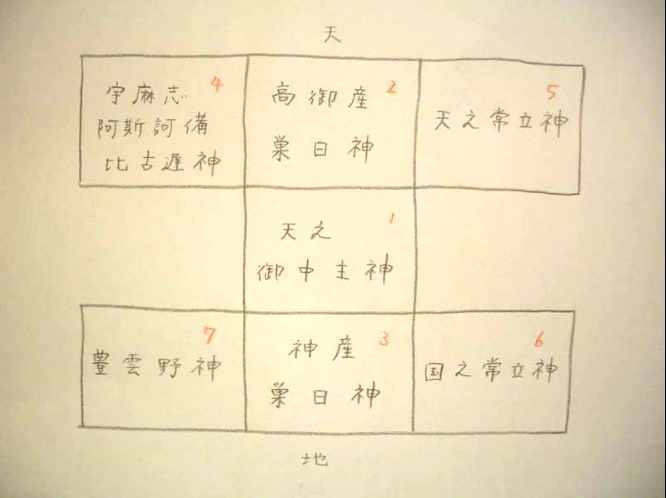 天
4
宇麻志
阿斯訶備
比古遅神
2
高御産
巣日神
5
天之常立神
1
天之
御中主神
7
豊雲野神
3
神産
巣日神
6
国之常立神
地